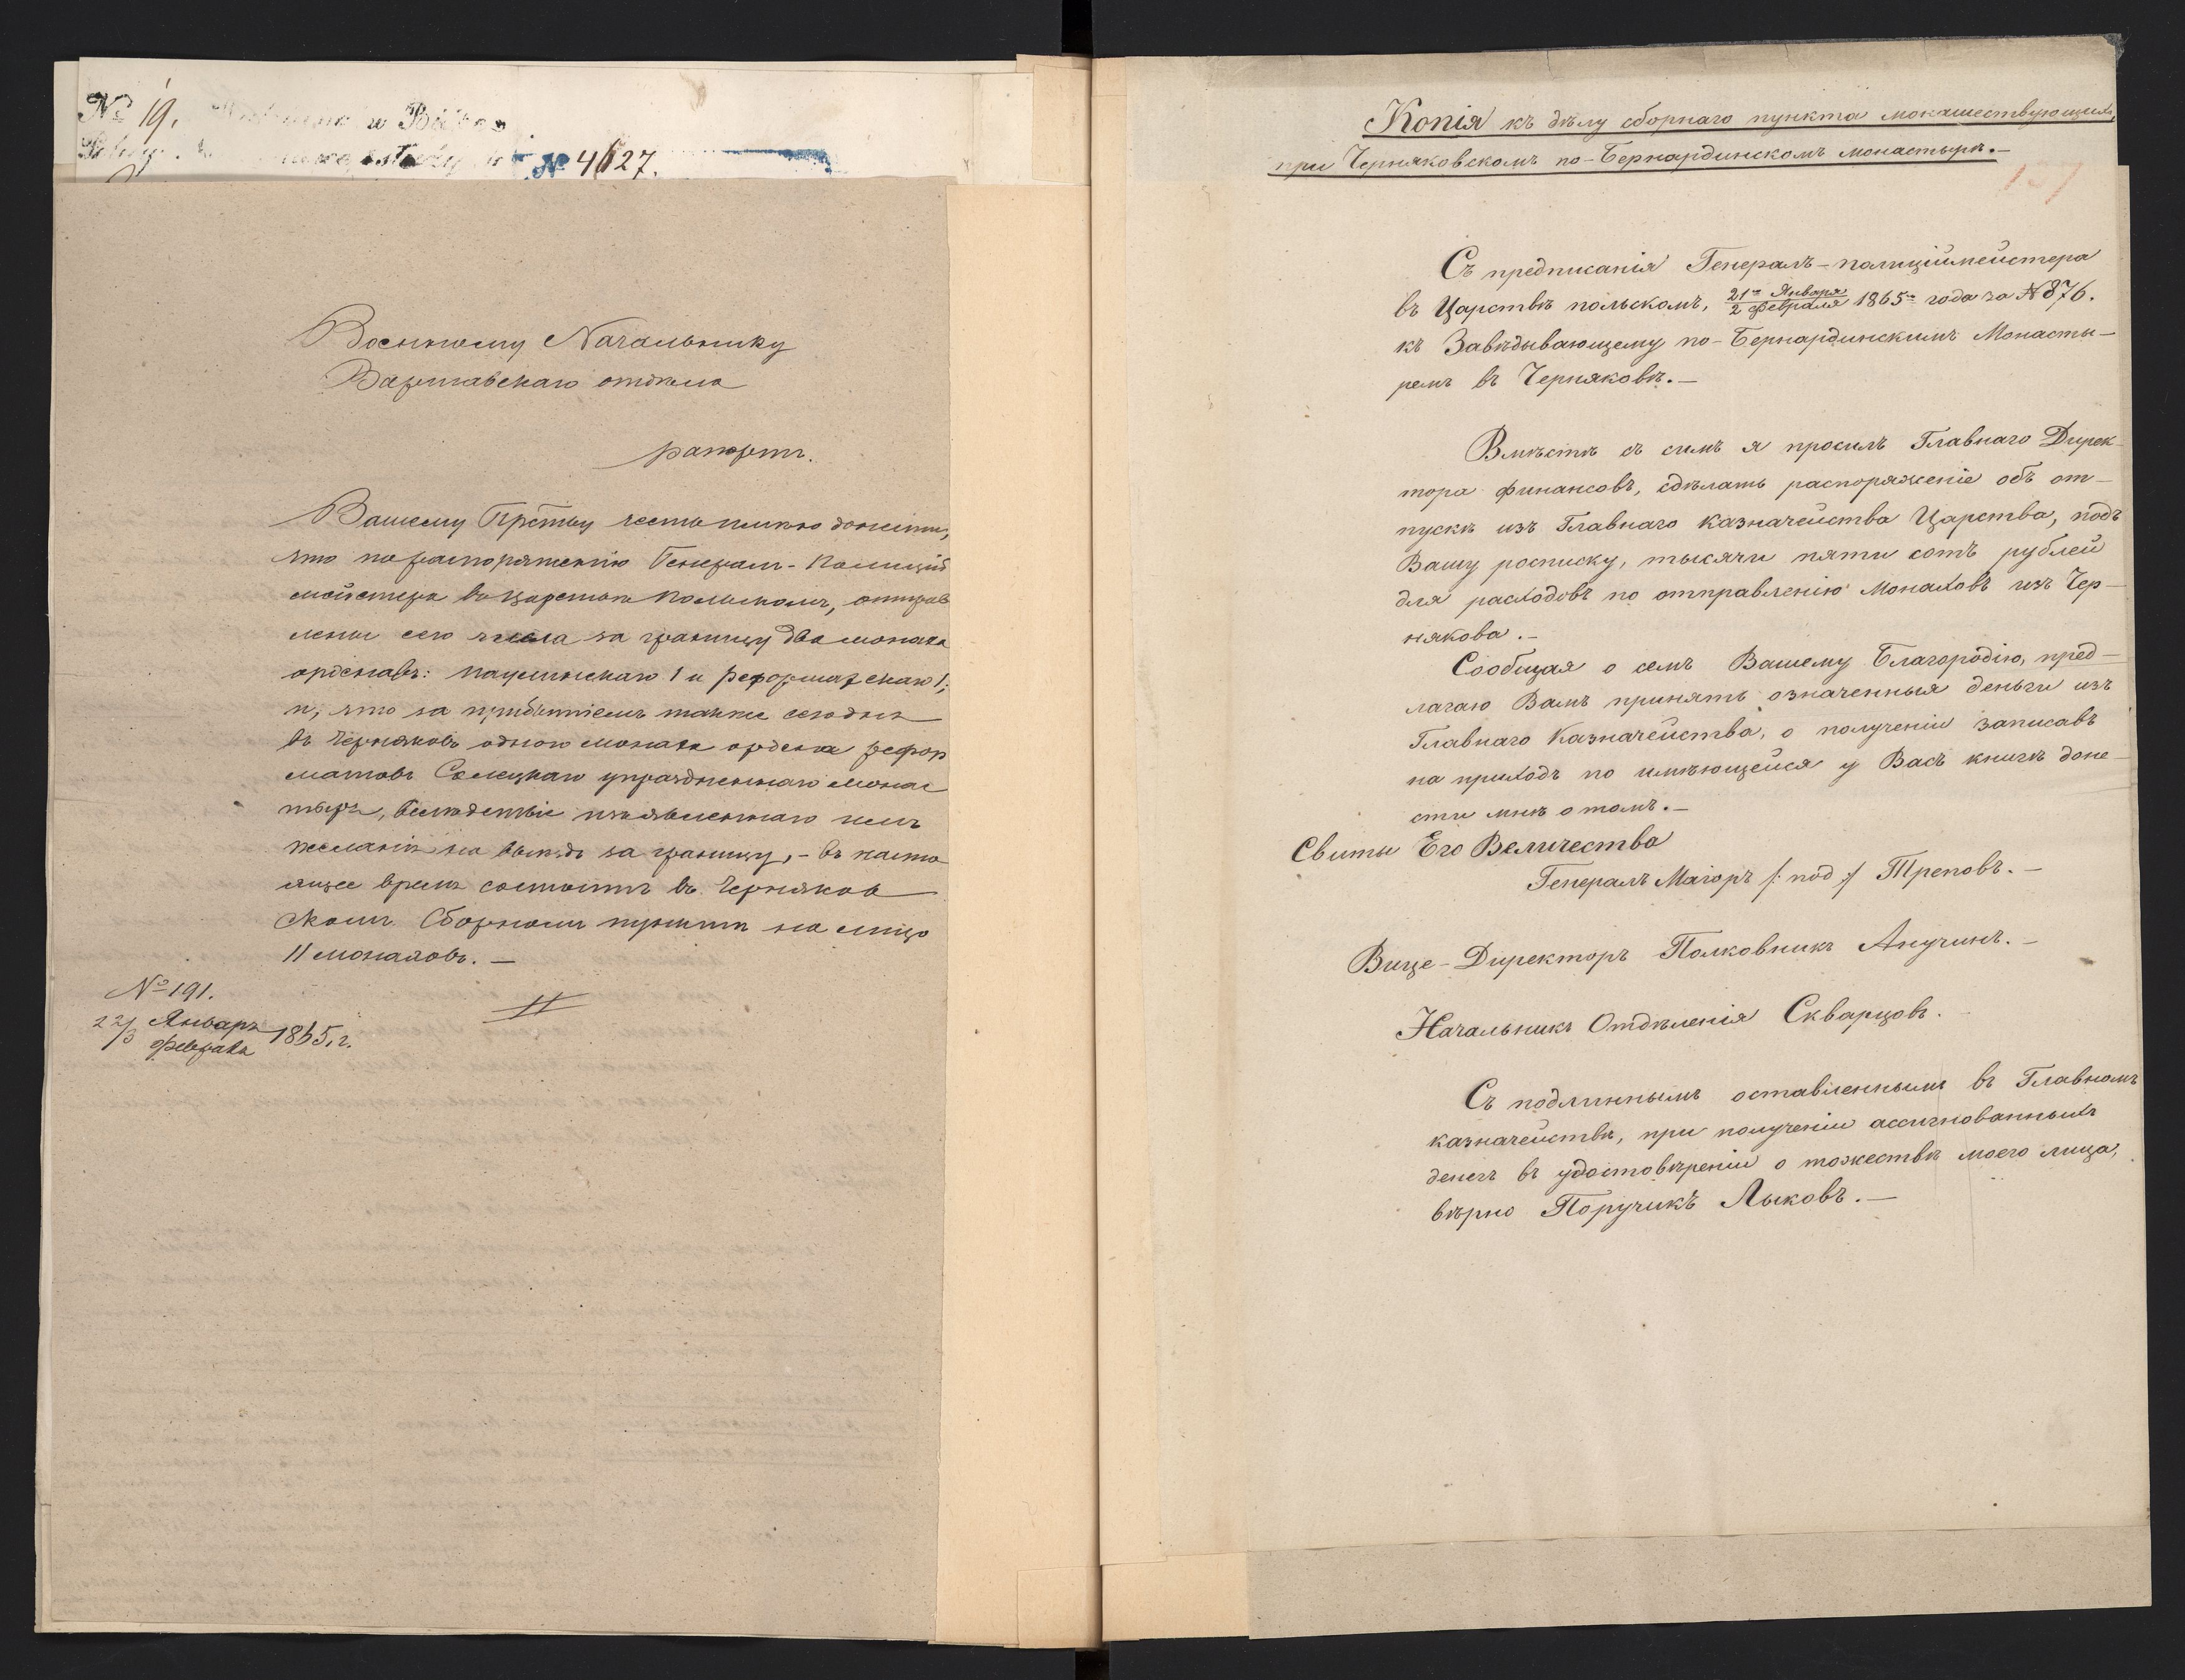 № 19.
№ 4627.
Военному Начальнику
Варшавскаго отдѣла
рапортъ.
Вашему Прству честь имѣю донести,
что по распоряженію Генералъ-Полицій
мейстера въ Царствѣ Польскомъ, отправ
лены сего числа за границу два монаха
орденовъ: паулинскаго 1 и реформатскаго 1;
и, что за прибытіемъ также сегодня
въ Черняковъ одного монаха ордена рефор
матовъ Солецкаго упраздненнаго монас
тыря, вслѣдствіе изъявленнаго имъ
желанія на выѣздъ за границу, - въ насто
ящее время состоитъ въ Черняков
скомъ Сборномъ пунктѣ на лицо
11 монаховъ. —
№ 191.
22/3 Января Февраля 1865 г.
Копія къ дѣлу сборнаго пункта монашествующихъ,
при Черняковскомъ по-Бернардинскомъ монастырѣ.—
Съ предписанія Генералъ-полиціймейстера
въ Царствѣ польскомъ, 21го Января / 2 Февраля 1865го года за № 876.
къ Завѣдывающему по-Бернардинскимъ Монасты-
ремъ въ Черняковѣ.—
Вмѣстѣ съ симъ я просилъ Главнаго Дирек-
тора финансовъ, сдѣлать распоряженіе объ от-
пускѣ изъ Главнаго казначейства Царства, подъ
Вашу росписку, тысячи пяти сотъ рублей
для расходовъ по отправленію монаховъ изъ Чер-
някова.—
Сообщая о семъ Вашему Благородію, пред-
лагаю Вамъ принять означенныя деньги изъ
Главнаго Казначейства, о полученіи записавъ
на приходъ по имѣющейся у Васъ книгѣ доне-
сти мнѣ о томъ.—
Свиты Его Величества
Генералъ Маіоръ /: под :/ Треповъ.—
Вице-Директоръ Полковникъ Анучинъ.—
Начальникъ Отдѣленія Скварцовъ.
Съ подлиннымъ оставленнымъ въ Главномъ
казначействѣ, при полученіи ассигнованныхъ
денегъ въ удостовѣреніи о тожествѣ моего лица,
вѣрно Поручикъ Лыковъ.—